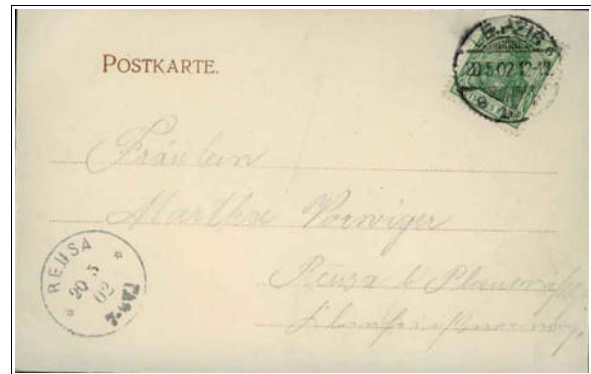 POSTKARTE.
LEIPZIG
20.5.02.12-1
Fräulein
Marthe Vorwiger
Reusa b Plauen
REUSA
20 5
02